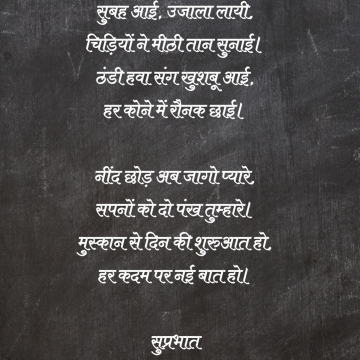 सुबह आई, उजाला लायी,
चिड़ियों ने मीठी तान सुनाई।
ठंडी हवा संग खुशबू आई,
हर कोने में रौनक छाई।
नींद छोड़ अब जागो प्यारे,
सपनों को दो पंख तुम्हारे।
मुस्कान से दिन की शुरुआत हो,
हर कदम पर नई बात हो।
सुप्रभात